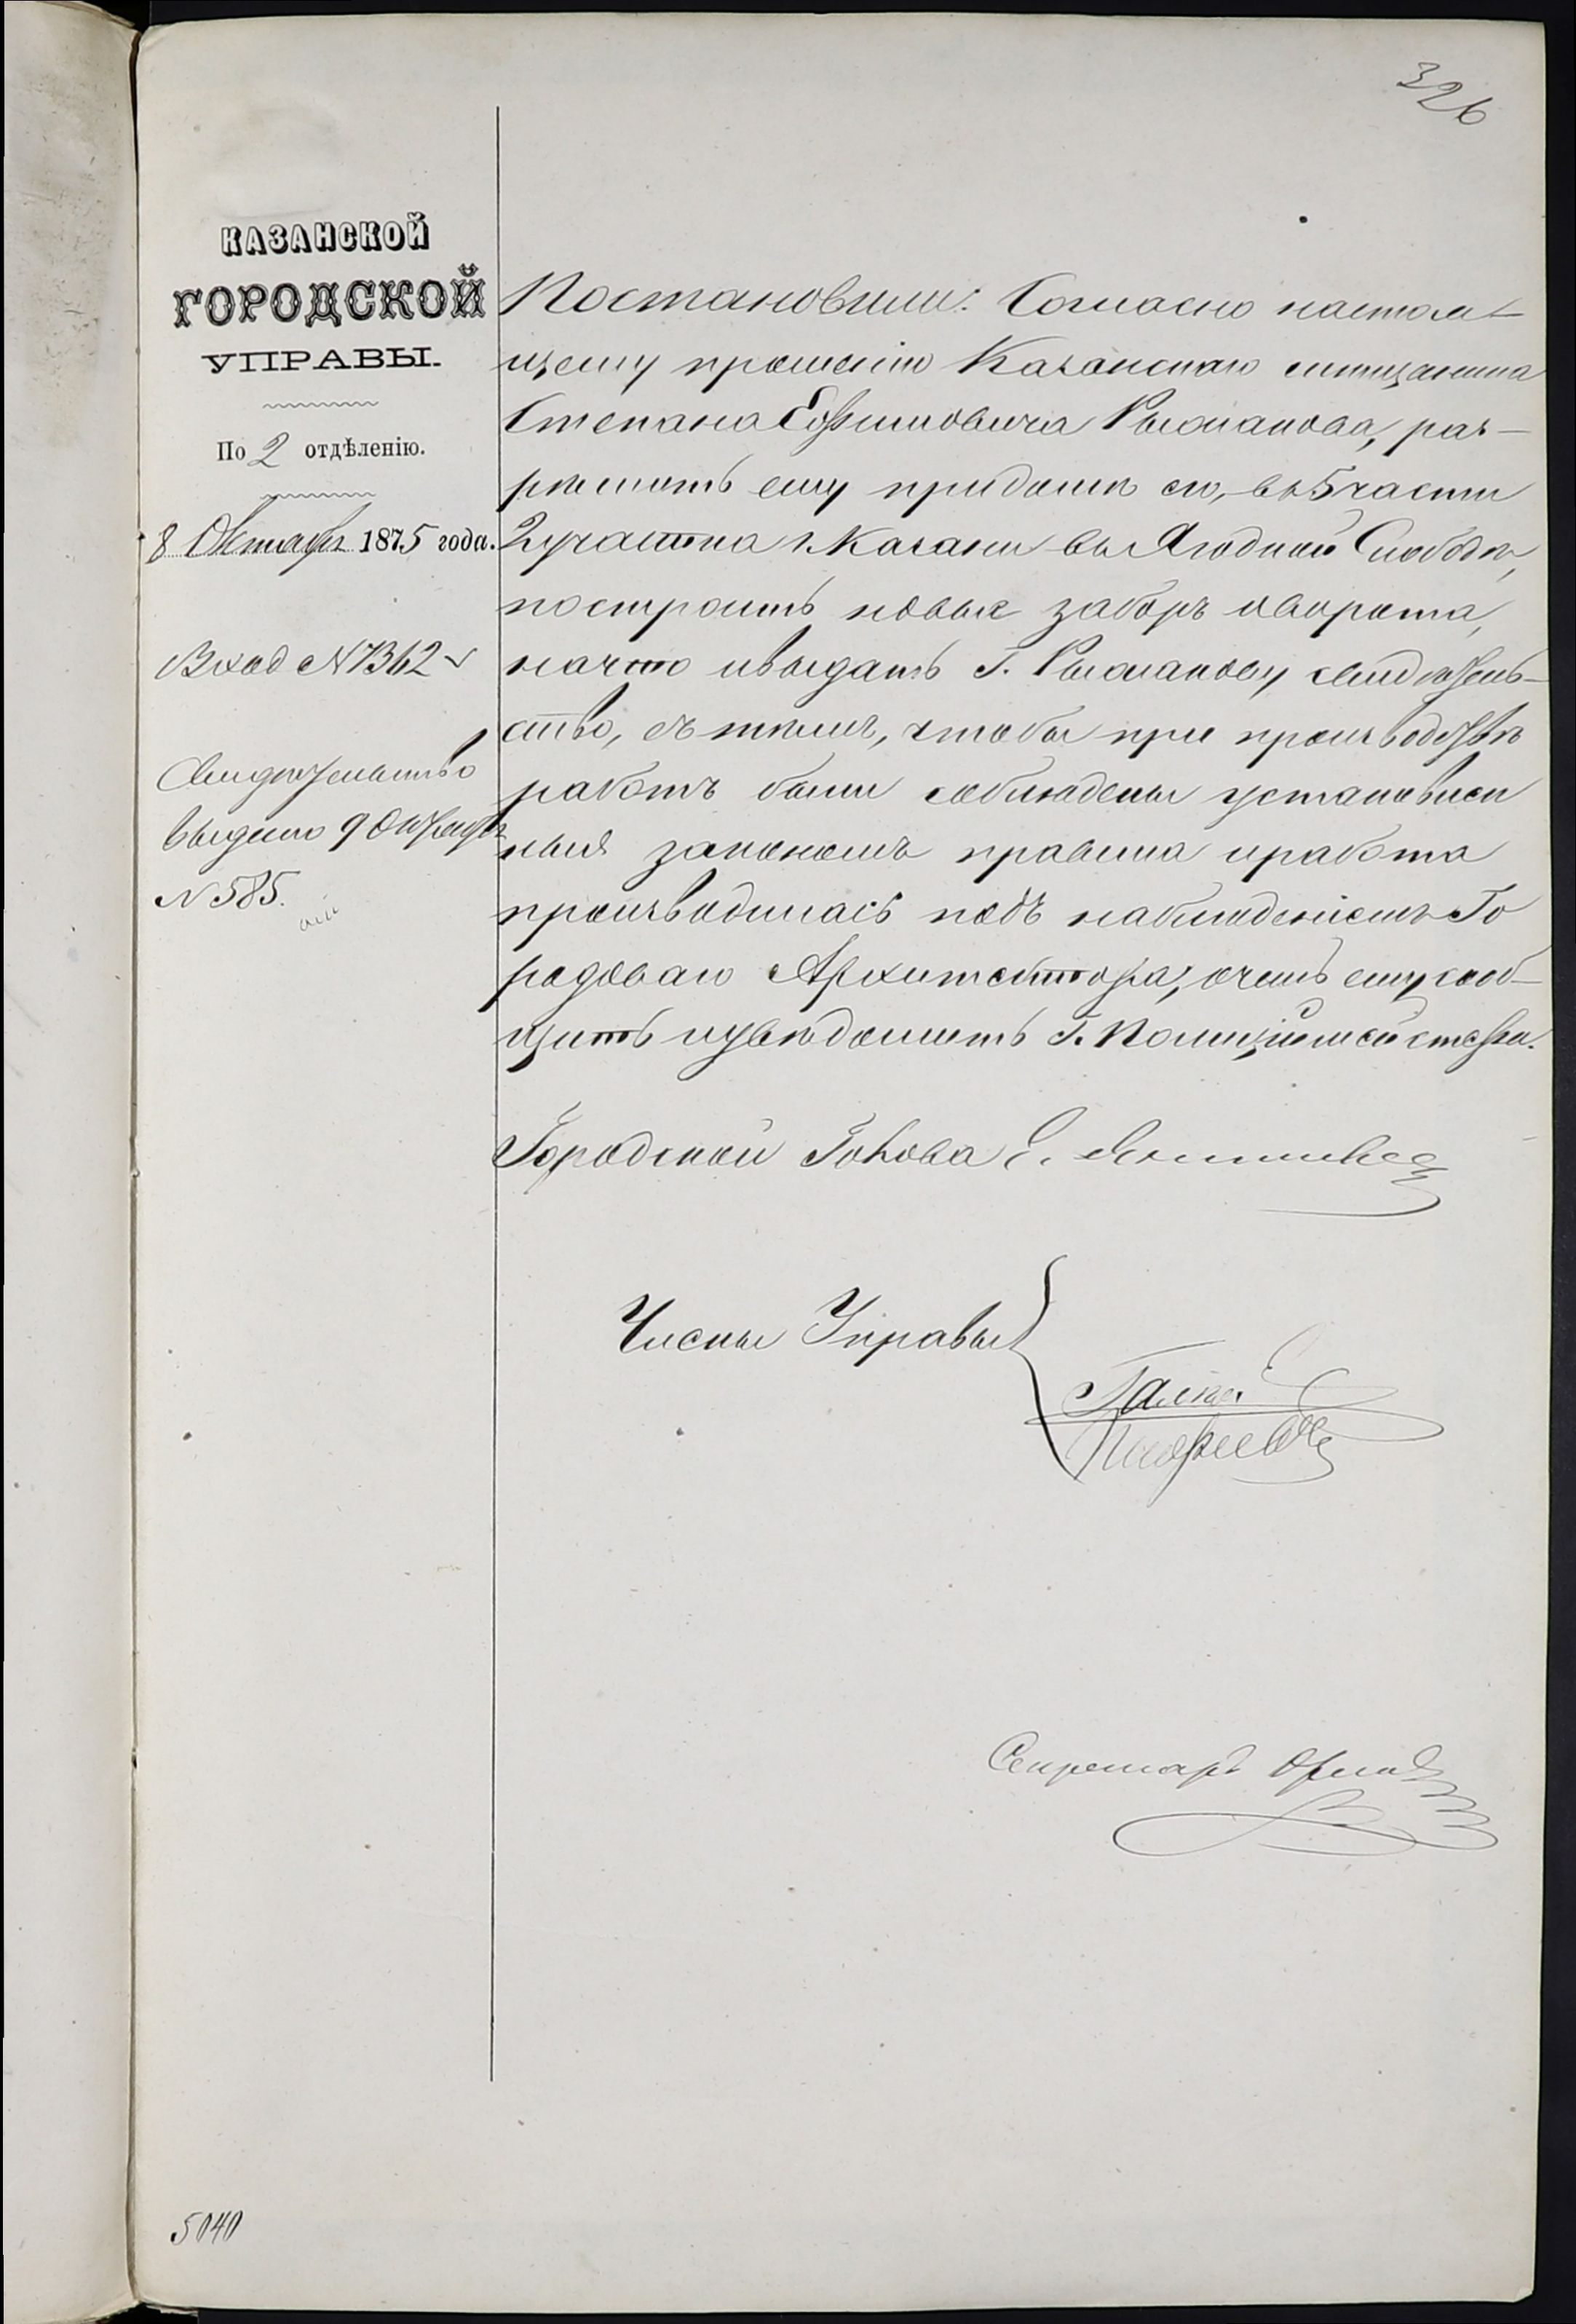 326
КАЗАНСКОЙ
ГОРОДСКОЙ
УПРАВЫ.
По 2 отдѣленію.
8 Октября 1875 года.
Вход №7362
Свидѣтельство
выдано 9 Октября
№585.
Постановили: Согласно настоя-
щему прошенію Казанскаго мѣщанина
Степана Ефимовича, раз-
рѣшить ему при домѣ его, въ 5 части
2 участка г. Казани въ Ягодной Слободѣ,
построить новые заборъ и ворота,
на что и выдать Г. свидѣтель-
ство, съ тѣмъ, чтобы при производствѣ
работъ были соблюдены установлен
ныя закономъ правила и работа
производилась подъ наблюденіемъ Го
родоваго Архитектора, о чемъ ему сооб-
щить и увѣдомить Г. Полиціймейстера.
Городской Голова
Члены Управы
Секретарь Орлов
5040